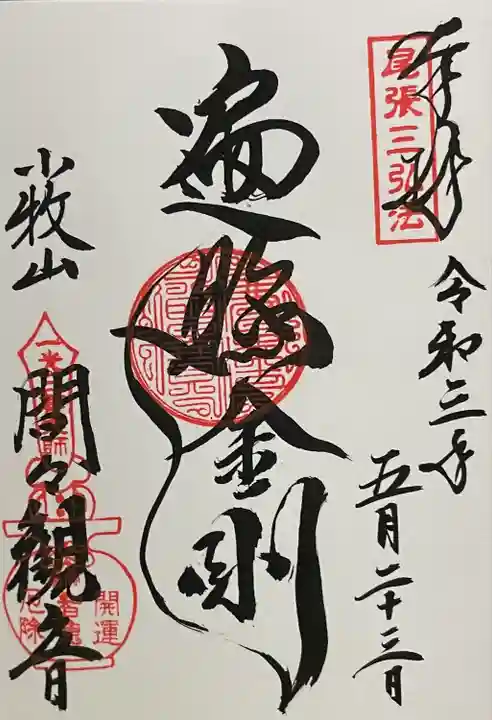 奉拝
尾張三弘法
令和三年
五月二十三日
遍照金剛
小牧山
間々観音
開運
厄除